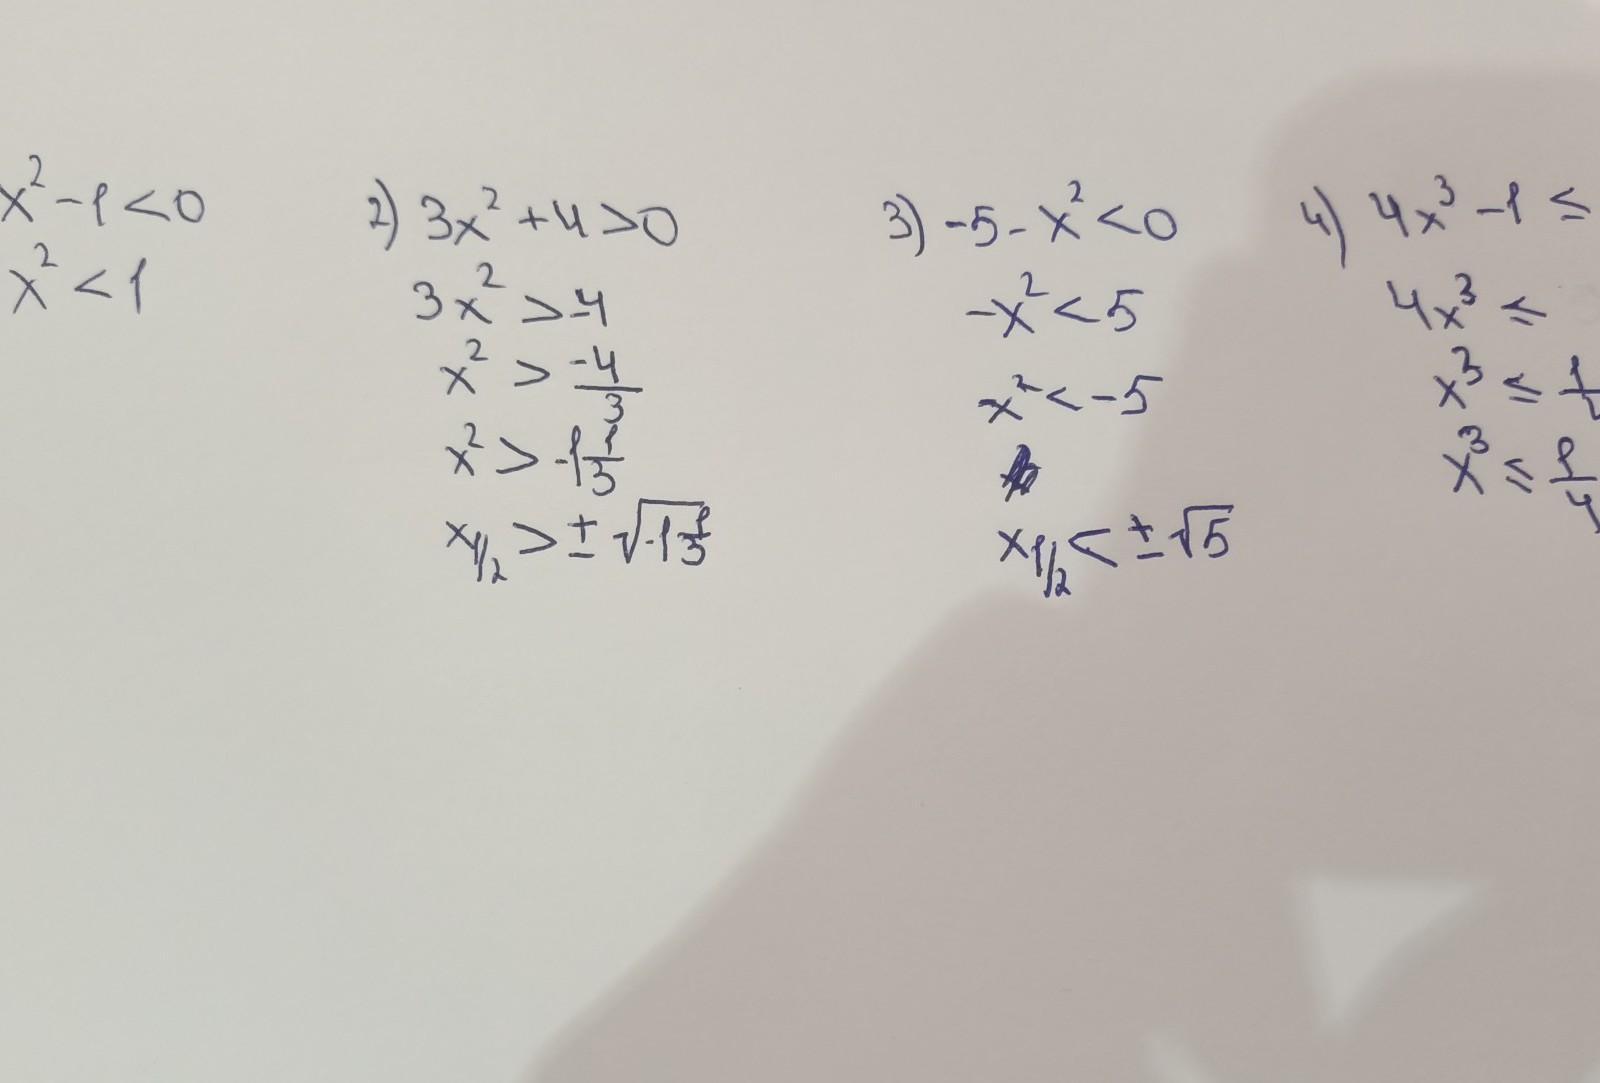 x² - 1 < 0
x² < 1
2) 3x² + 4 > 0
3x² > -4
x² > -4/3
x² > -1 1/3
x₁/₂ > ± √-1 1/3
3) -5 - x² < 0
-x² < 5
x² < -5
x₁/₂ < ± √5
4) 4x³ - 1 ≤
4x³ ≤
x³ ≤ 1/
x³ ≤ 1/4